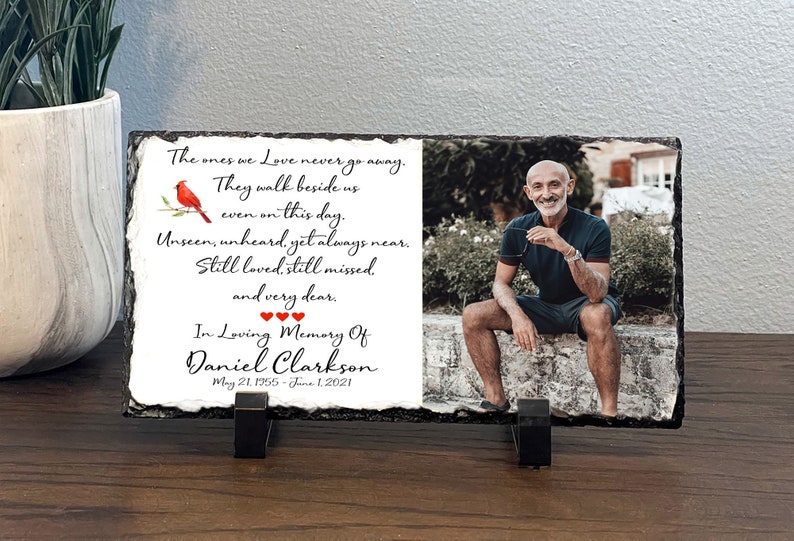 The ones we Love never go away.
They walk beside us
even on this day.
Unseen, unheard, yet always near.
Still loved, still missed,
and very dear.
In Loving Memory Of
Daniel Clarkson
May 21, 1955 - June 1, 2021